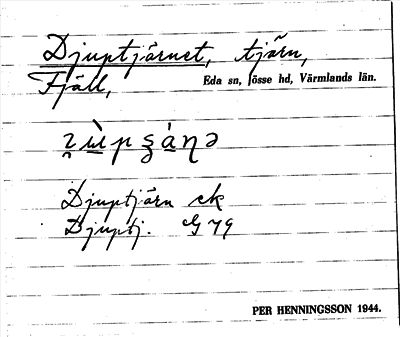 Djuptjärnet, tjärn,
Fjäll, Eda sn, Jösse hd, Värmlands län.
Djuptjärn ek
Djuptj. G 79
PER HENNINGSSON 1944.